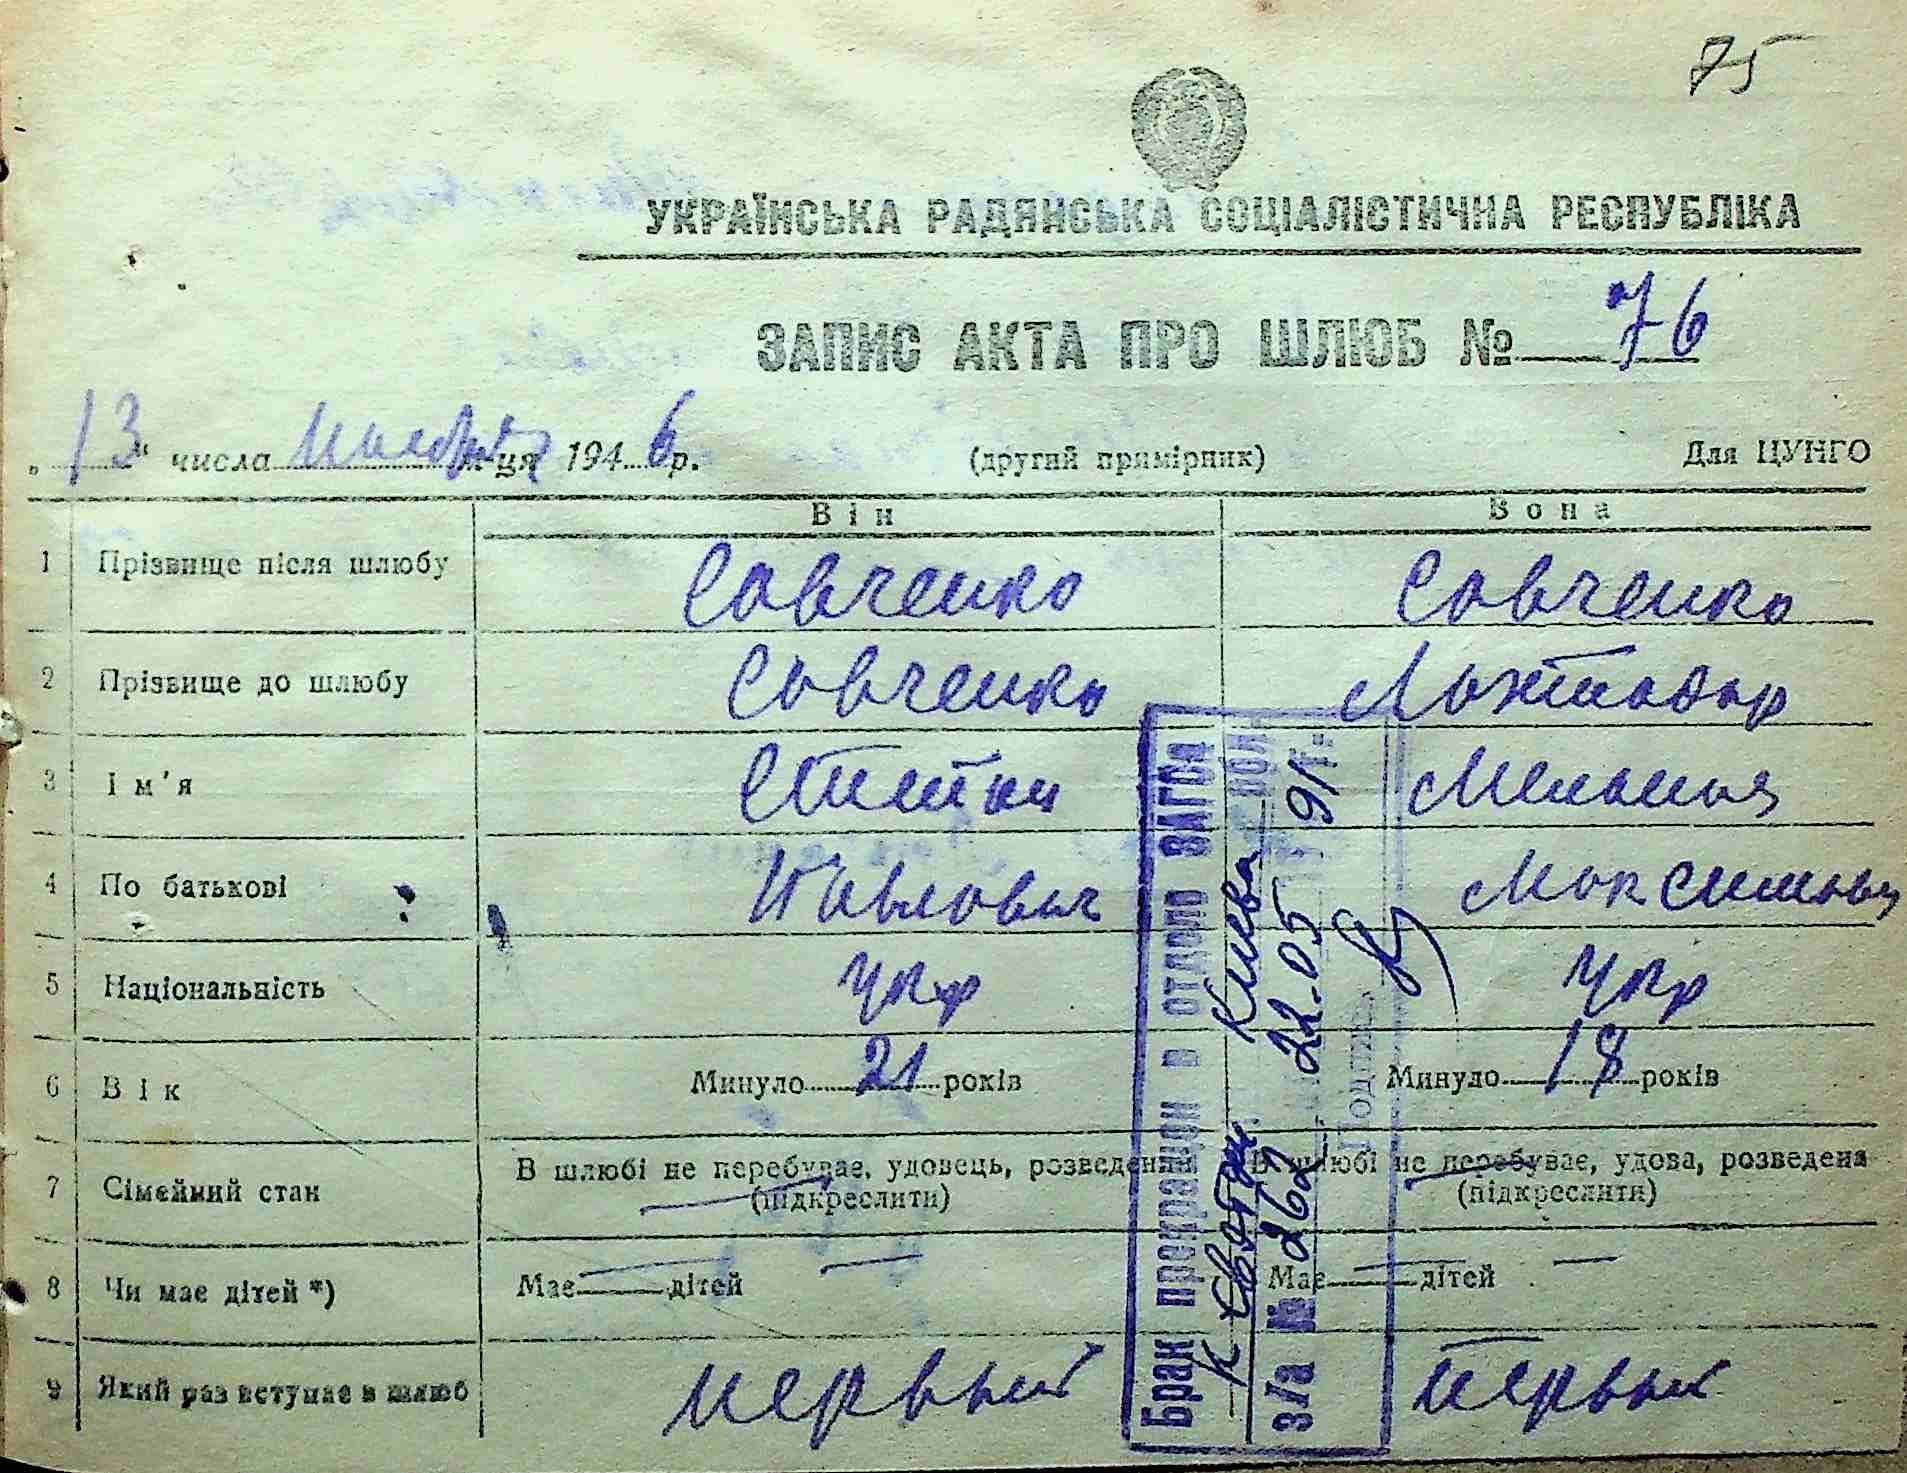 75
УКРАЇНСЬКА РАДЯНСЬКА СОЦІАЛІСТИЧНА РЕСПУБЛІКА
ЗАПИС АКТА ПРО ШЛЮБ № 76
„13“ числа м-ця 1946р. (другий прямірник) Для ЦУНГО
Він Вона
1 Прізвище після шлюбу Савченко Савченко
2 Прізвище до шлюбу Савченко
3 Ім'я Степан Мелания
4 По батькові Павлович Максимовна
5 Національність Укр Укр
6 Вік Минуло 21 років Минуло 18 років
7 Сімейний стан В шлюбі не перебуває, удовець, розведений В шлюбі не перебуває, удова, розведена
(підкреслити) (підкреслити)
8 Чи має дітей *) Має — дітей — Має — дітей —
9 Який раз вступає в шлюб первый первый
Брак прекращен в отделе ЗАГСа
Киева
з/а № 262 22.05 91г.
Подпись